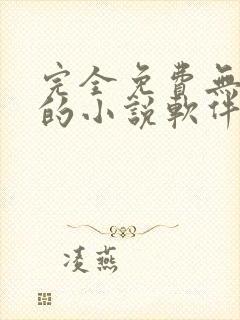 完全免費無
的小說軟件
凌燕